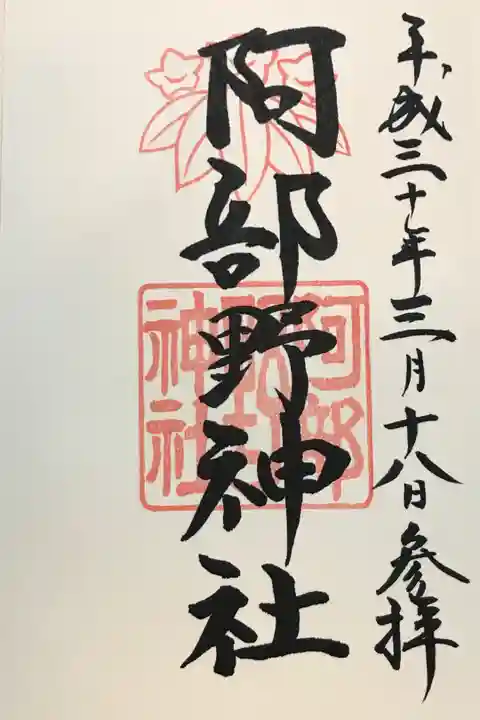 平成三十年三月十八日参拝
阿部野神社
阿部
野
神社